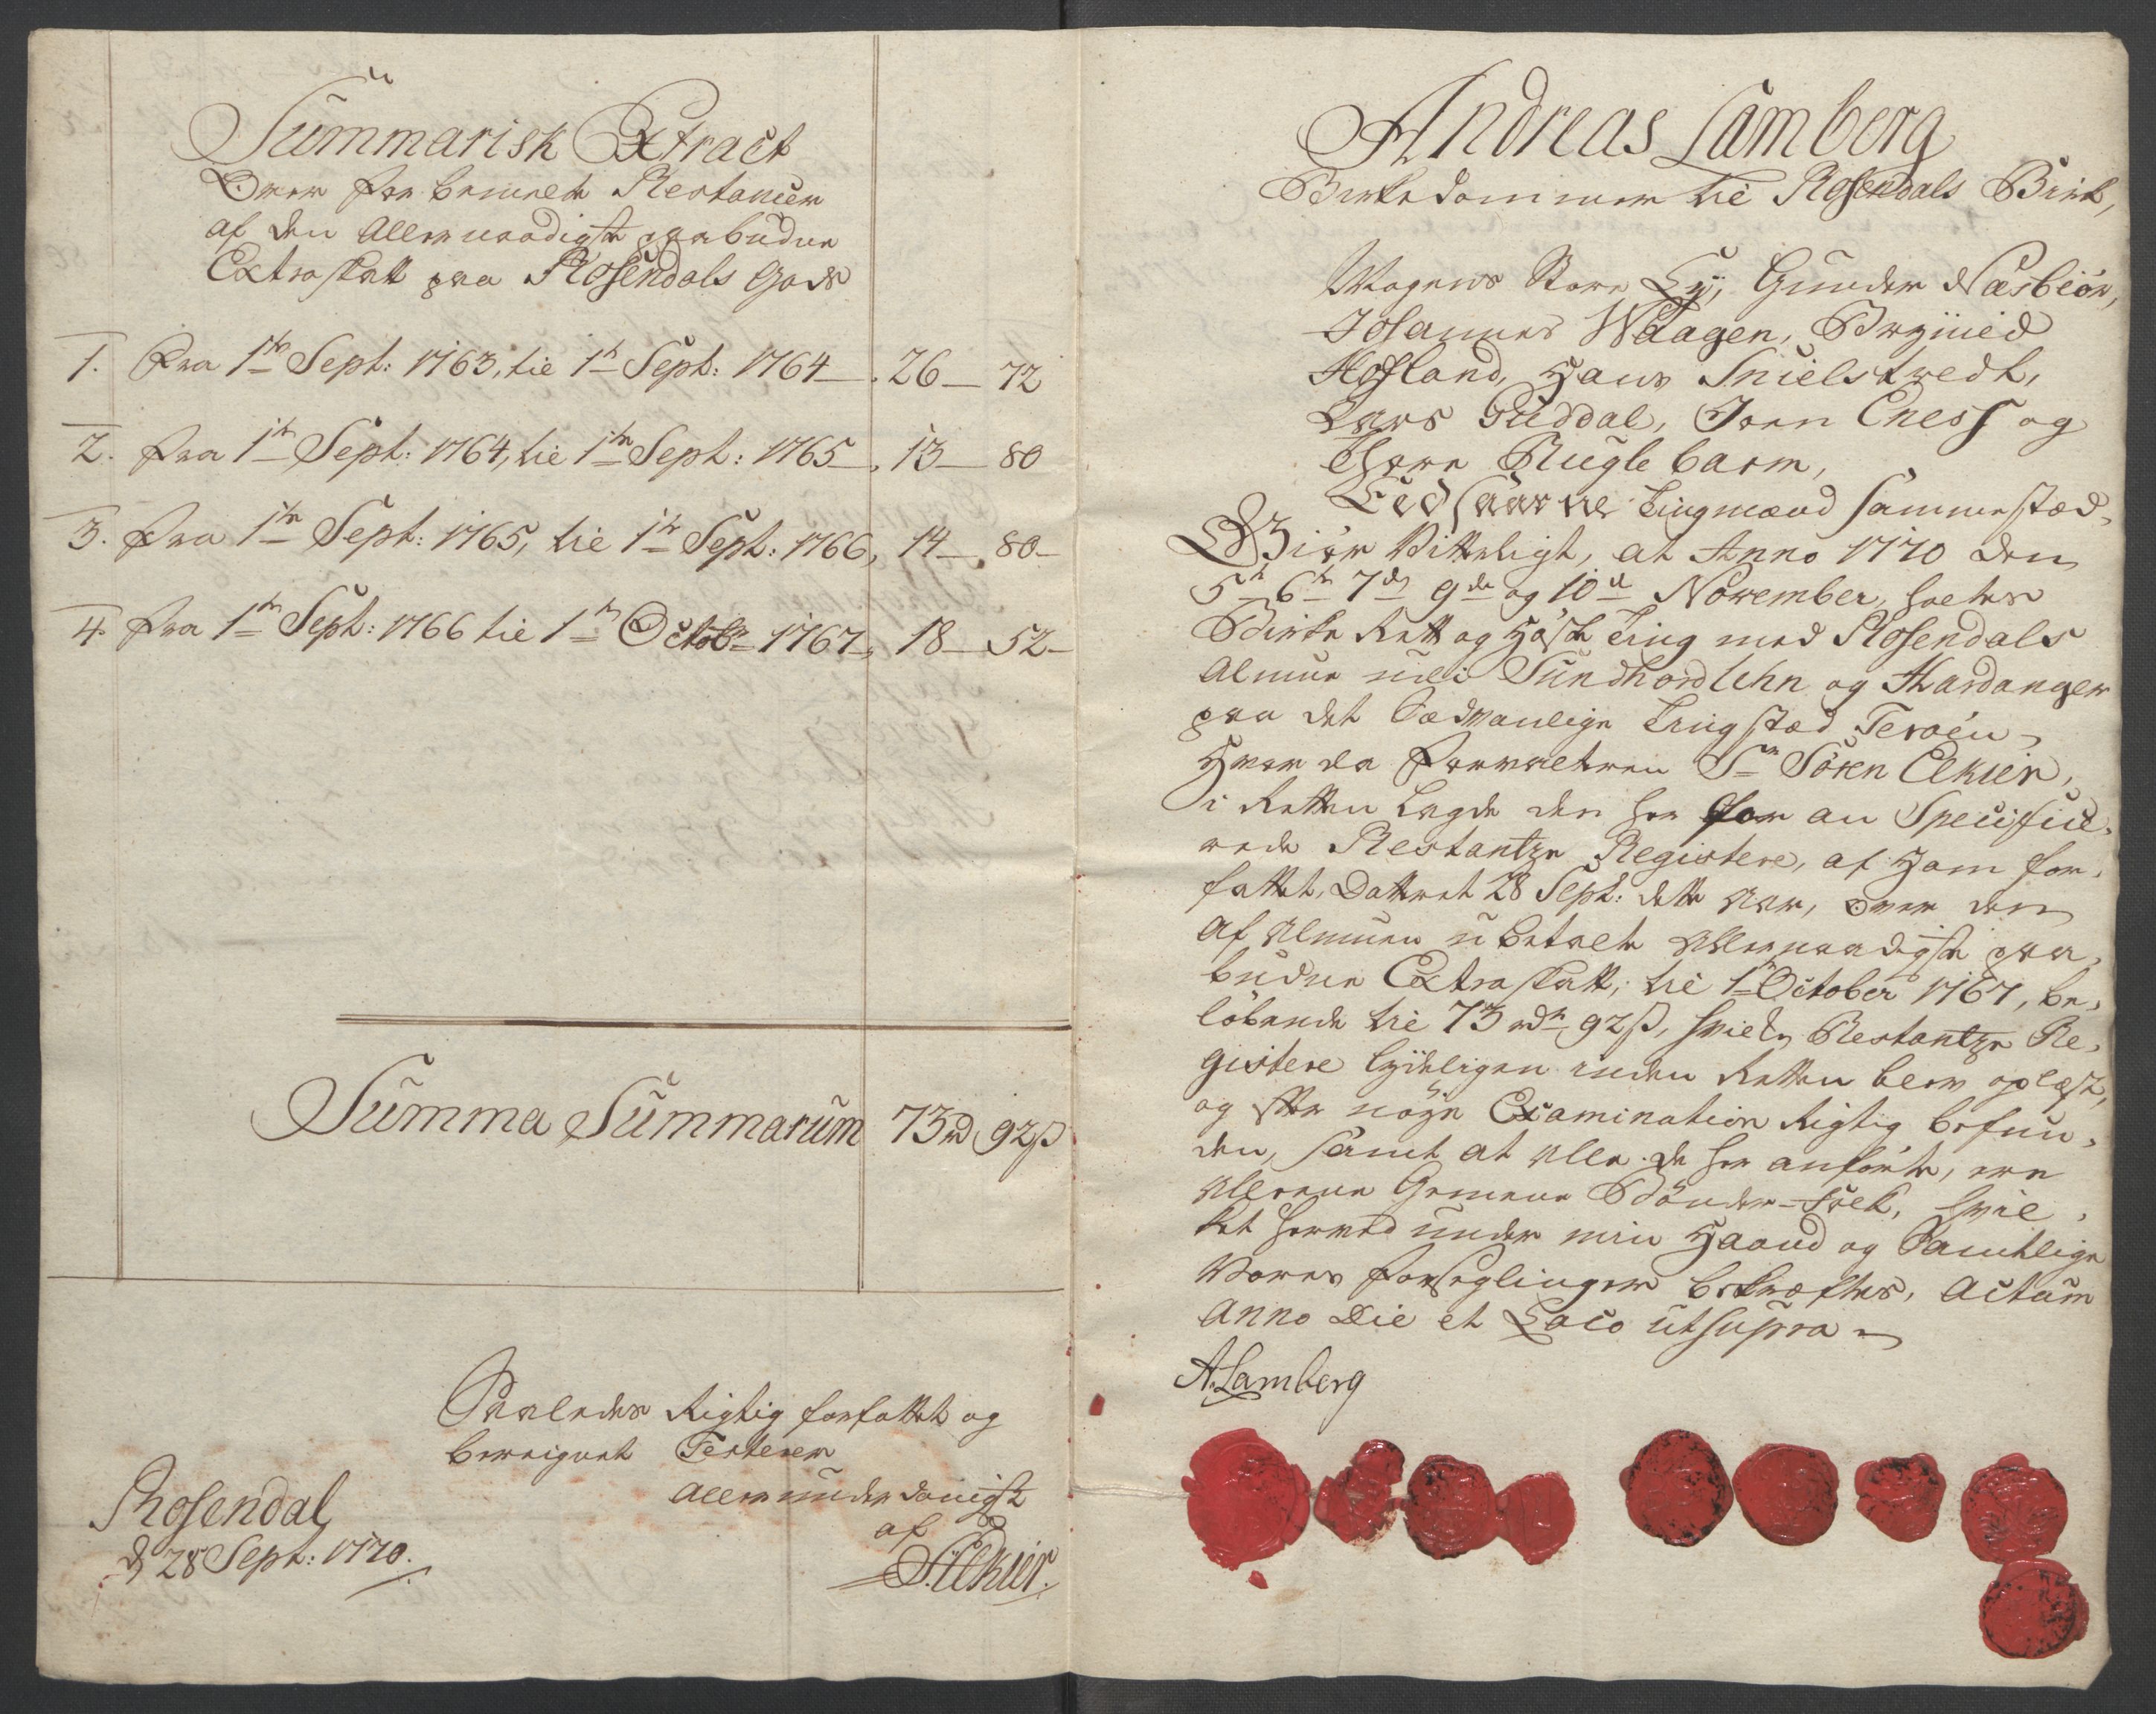 Summarisk Extract
Over forbemelte Restancer
af den Allernaadigste paabudne
Extraskatt paa Rosendals Gods
1. Fra 1te Sept: 1763, til 1te Sept: 1764 26 — 72
2. Fra 1te Sept: 1764, til 1te Sept: 1765 13 — 80
3. Fra 1te Sept: 1765, til 1te Sept: 1766, 14 — 80
4. Fra 1te Sept: 1766 til 1te Octobr 1767, 18 — 52
Summa Summarum 73 rd 92 ß
Saaledes Rigtig forfattet og
beregnet Testerer
Allerunderdanigst
af
S: Elkier.
Rosendal
d 28 Sept: 1770.
Andreas Lamberg
Birkedommer til Rosendals Birk,
Mogens Store Lÿ, Gunder Næsbiör,
Johannes Waagen, Brÿnild
Hofland, Hans Snielstvedt,
Lars Guddal, Joen Eness og
Thore Ruglebarm,
Eedsvorne Tingmænd sammestæd,
Giör Vitterligt, at Anno 1770 den
5te 6te 7de 9de og 10de November, holtes
Birke Rett og Höste Ting med Rosendals
Almue udi Sundhordlehn og Hardanger
paa det sædvanlige Tingstæd Teroen,
Hvor da Forvalteren Sr Sören Elkier,
i Retten Lagde den her foran Specifice,
rede Restantze Registere, af Ham for,
fattet, Datteret 28 Sept: dette Aar, over den
af Almuen ubetalte Allernaadigste paa,
budne Extraskatt, til 1te October 1767, be,
löbende til 73 rdr 92 ß, hvilke Restantze Re,
gistere lÿdeligen inden Retten blev oplæst,
og efter nöÿe Examination Rigtig befun,
den, samt at alle de her anförte, ere
allene Gemene Bönder-Folk, hvil,
ket hermed under min Haand og Samtlige
Vores forseglinger bekræftes, Actum
Anno Die et Loco utsupra
A. Lamberg